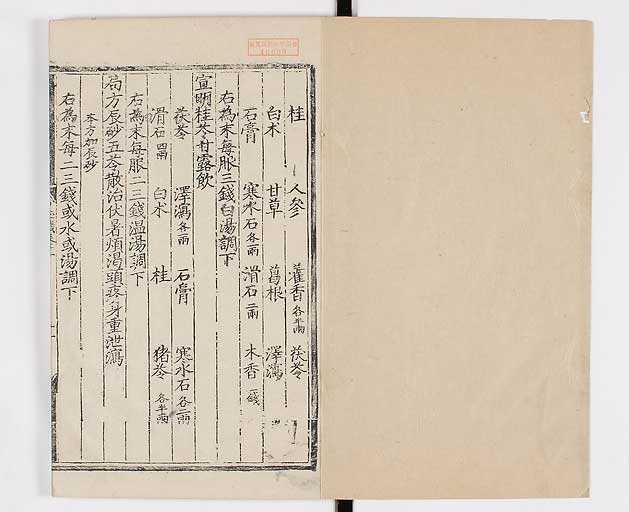 桂 人參 藿香各半兩 茯苓
白术 甘草 葛根 澤瀉
石膏 寒水石各二兩 滑石二兩 木香一錢
右為末每服三錢白湯調下
宣明桂苓甘露飲
茯苓 澤瀉各二兩 石膏 寒水石各二兩
滑石四兩 白术 桂 猪苓各半兩
右為末每服二三錢温湯調下
局方辰砂五苓散治伏暑煩渴頭疼身重泄瀉
本方加辰砂
右為末每二三錢或水或湯調下